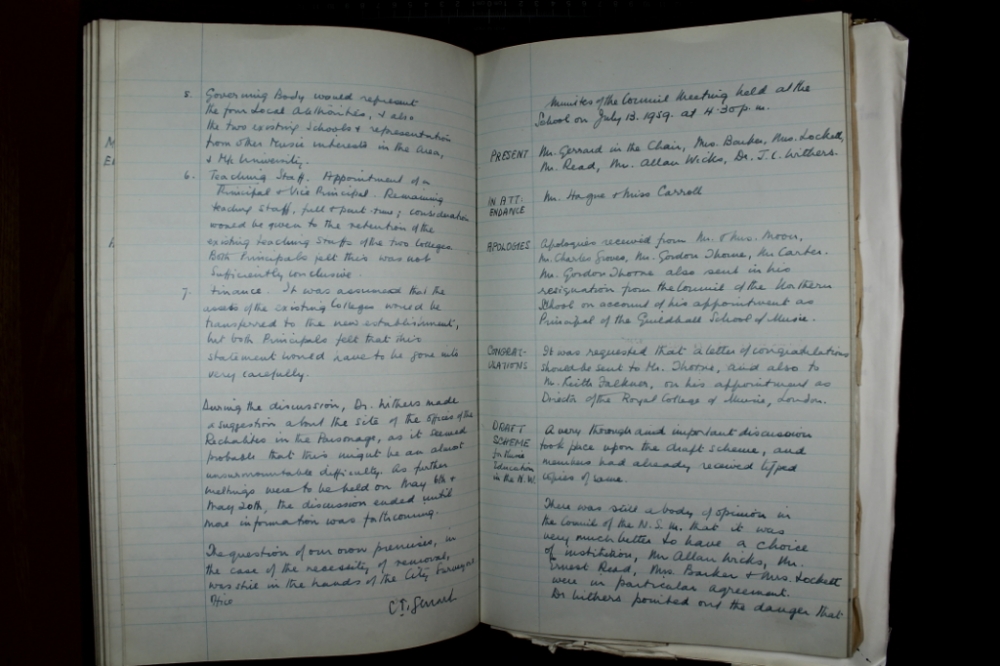 5. Governing Body would represent
the four Local Authorities, & also
the two existing Schools & representation
from other Music interests in the Area,
& the University.
6. Teaching Staff. Appointment of a
Principal & Vice Principal. Remaining
teaching staff, full & part-time; consideration
would be given to the retention of the
existing teaching staffs of the two Colleges.
Both Principals felt this was not
sufficiently conclusive.
7. Finance. It was assumed that the
assets of the existing Colleges would be
transferred to the new establishment,
but both Principals felt that this
statement would have to be gone into
very carefully.
During the discussion, Dr. Withers made
a suggestion about the site of the offices of the
Rechabites in the Parsonage, as it seemed
probable that this might be an almost
unsurmountable difficulty. As further
meetings were to be held on May 6th &
May 20th, the discussion ended until
more information was forthcoming.
The question of our own premises, in
the case of the necessity of removal,
was still in the hands of the City Surveyor's
Office
Minutes of the Council Meeting held at the
School on July 13. 1959. at 4-30 p.m.
PRESENT Mr. Gerrard in the Chair, Mrs. Barker, Mrs. Lockett,
Mr. Read, Mr. Allan Wicks, Dr. J. C. Withers.
IN ATT- Mr. Hague & Miss Carroll
ENDANCE
APOLOGIES Apologies received from Mr. & Mrs. Moon,
Mr. Charles Groves, Mr. Gordon Thorne, Mr. Carter.
Mr. Gordon Thorne also sent in his
resignation from the Council of the Northern
School on account of his appointment as
Principal of the Guildhall School of Music.
CONGRAT- It was requested that a letter of congratulations
ULATIONS should be sent to Mr. Thorne, and also to
Mr. Keith Falkner, on his appointment as
Director of the Royal College of Music, London.
DRAFT A very thorough and important discussion
SCHEME took place upon the draft scheme, and
for Music members had already received typed
Education copies of same.
in the N.W.
There was still a body of opinion in
the Council of the N.S.M. that it was
very much better to have a choice
of institution, Mr Allan Wicks, Mr.
Ernest Read, Mrs. Barker & Mrs. Lockett
were in particular agreement.
Dr Withers pointed out the danger that